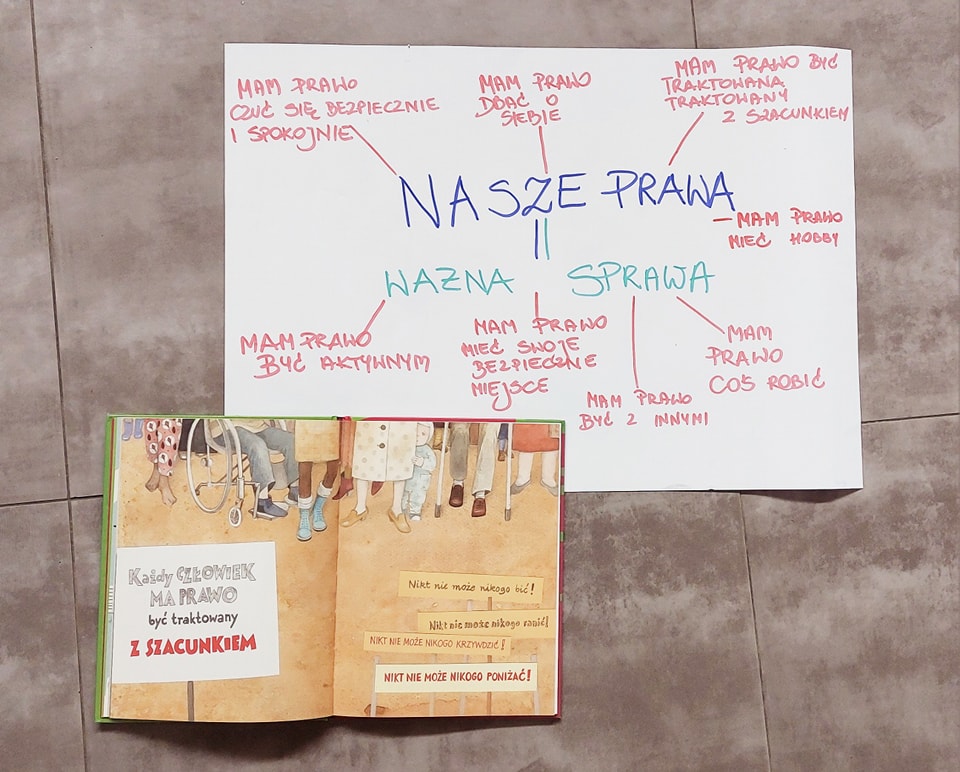 MAM PRAWO
CZUĆ SIĘ BEZPIECZNIE
I SPOKOJNIE
MAM PRAWO
DBAĆ O
SIEBIE
MAM PRAWO BYĆ
TRAKTOWANĄ
TRAKTOWANY
Z SZACUNKIEM
NASZE PRAWA
MAM PRAWO
MIEĆ HOBBY
WAZNA SPRAWA
MAM PRAWO
BYĆ AKTYWNYM
MAM PRAWO
MIEĆ SWOJE
BEZPIECZNE
MIEJSCE
MAM PRAWO
BYĆ Z INNYMI
MAM
PRAWO
COŚ ROBIĆ
Każdy CZŁOWIEK
MA PRAWO
być traktowany
Z SZACUNKIEM
Nikt nie może nikogo bić!
Nikt nie może nikogo ranić!
NIKT NIE MOŻE NIKOGO KRZYWDZIĆ!
NIKT NIE MOŻE NIKOGO PONIŻAĆ!